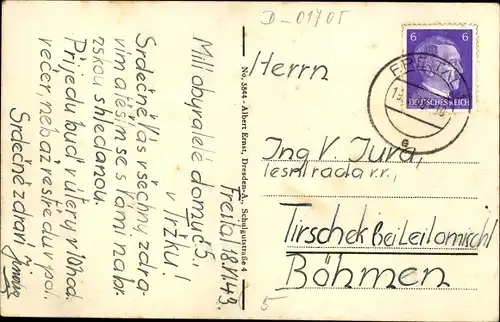 D-0140T
Freital 18.1.43.
Milí obyvatelé domu č 5.
v Tržku!
Srdečně Vás všechny zdra-
vím a těším se s Vámi na br-
zskou shledanou.
Přijedu buď v úterý v 10 hod.
večer, neb až ve středu v pol.
Srdečně zdraví
No. 3844 - Albert Ernst, Dresden-A., Schulgutstraße 4
6 6
DEUTSCHES REICH
FREITAL
Herrn
Ing V. Jura,
Tirschek bei Leitomischl
Böhmen
5